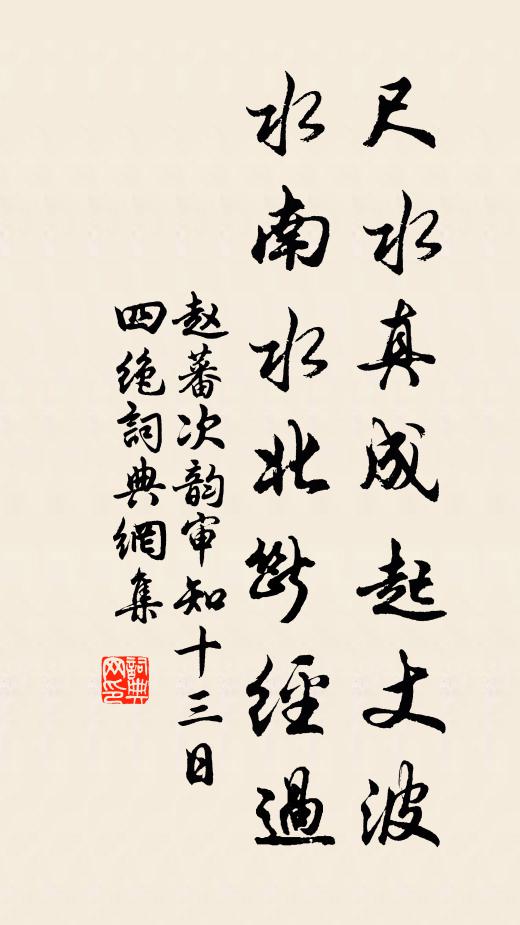 尺水真成起丈波
水南水北斷經過
赵蕃次韵审知十三日
四绝詞典網集
詞典网印